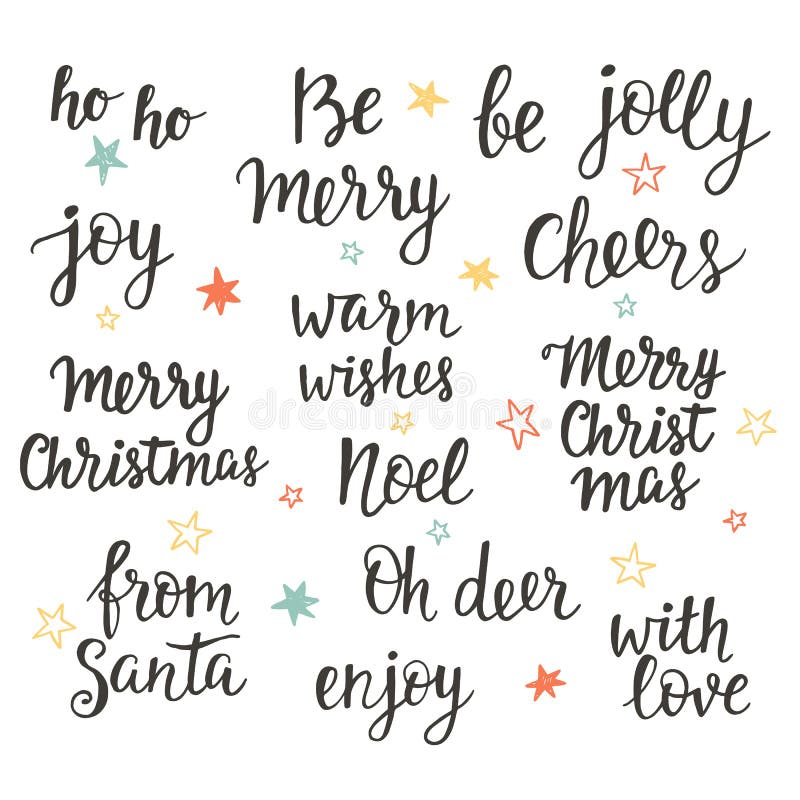 ho ho
Be
Merry
be jolly
joy
Cheers
warm
wishes
Merry
Christmas
Merry
Christ
mas
Noel
from
Santa
Oh deer
enjoy
with
love
dreamstime